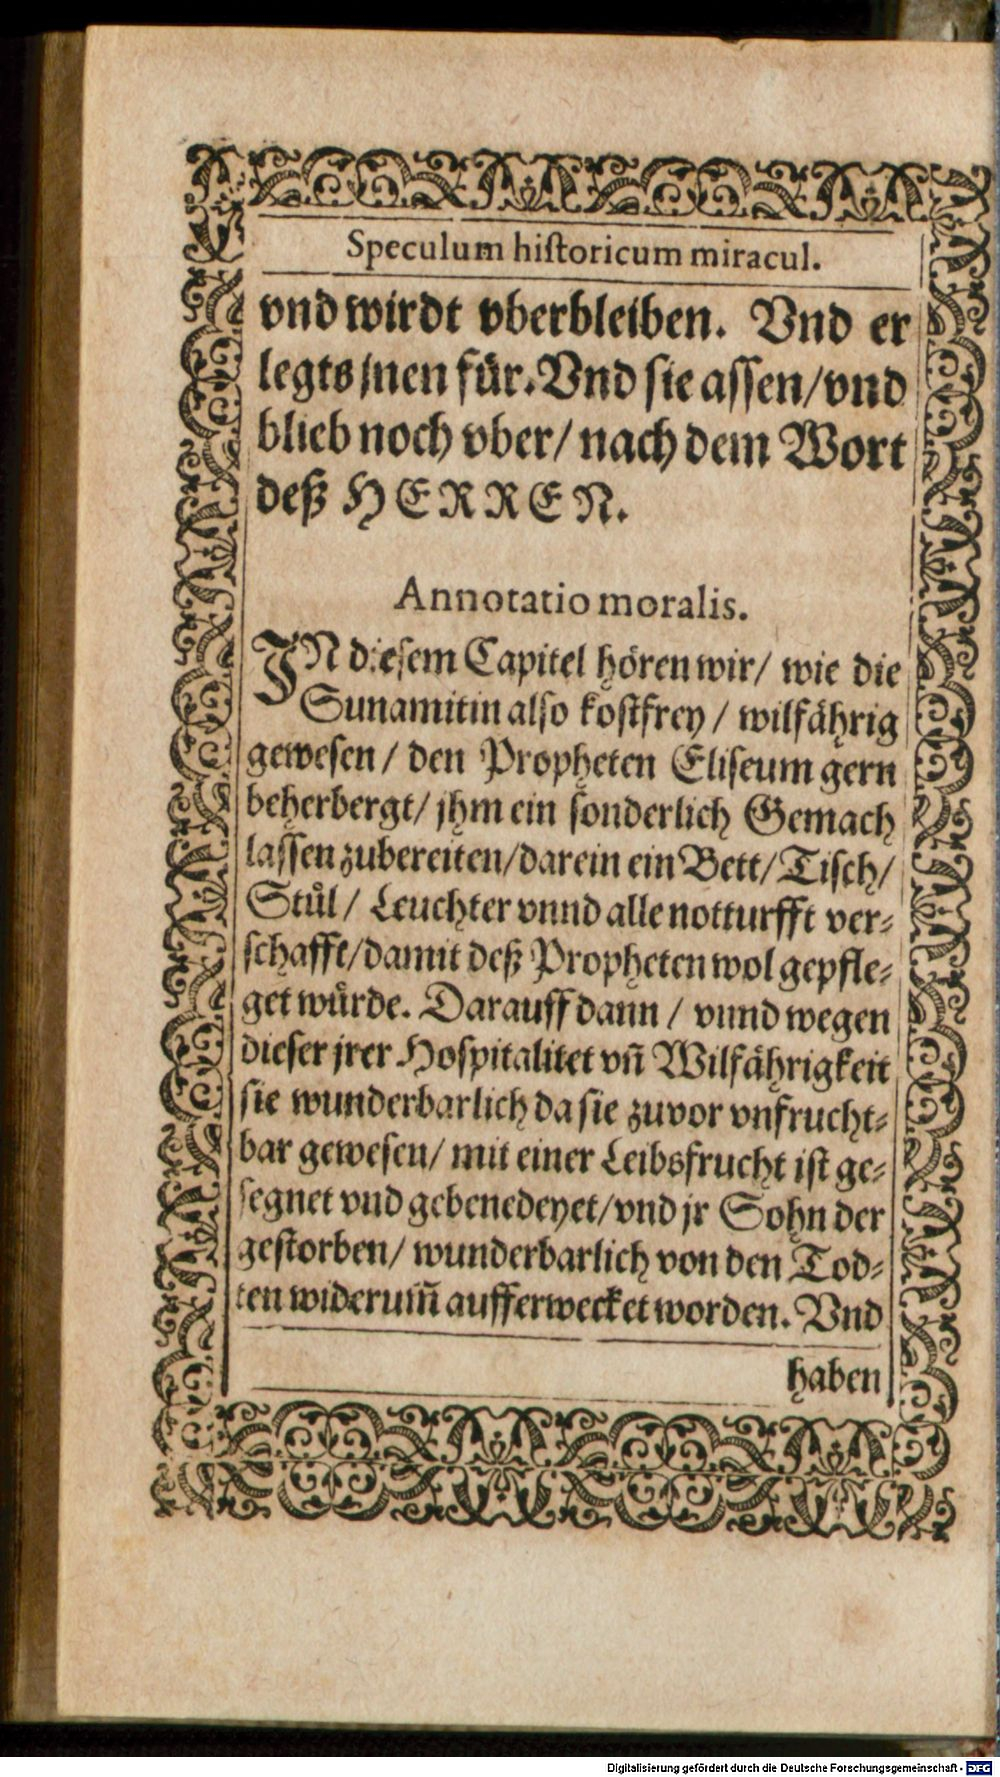 Speculum historicum miracul.
vnd wirdt vberbleiben. Vnd er
legts jnen für. Vnd sie assen/vnd
blieb noch vber/ nach dem Wort
deß HERREN.
Annotatio moralis.
IN diesem Capitel hören wir/ wie die
Sunamitin also kostfrey / wilfährig
gewesen / den Propheten Eliseum gern
beherbergt/ jhm ein sonderlich Gemach
lassen zubereiten/darein ein Bett/Tisch/
Stůl/ Leuchter vnnd alle notturfft ver-
schafft/damit deß Propheten wol gepfle-
get würde. Darauff dann / vnnd wegen
dieser jrer Hospitalitet vñ Wilfährigkeit
sie wunderbarlich da sie zuvor vnfrucht-
bar gewesen/ mit einer Leibsfrucht ist ge-
segnet vnd gebenedeyet/vnd jr Sohn der
gestorben/ wunderbarlich von den Tod-
ten widerum̃ aufferwecket worden. Vnd
haben
Digitalisierung gefördert durch die Deutsche Forschungsgemeinschaft - DFG